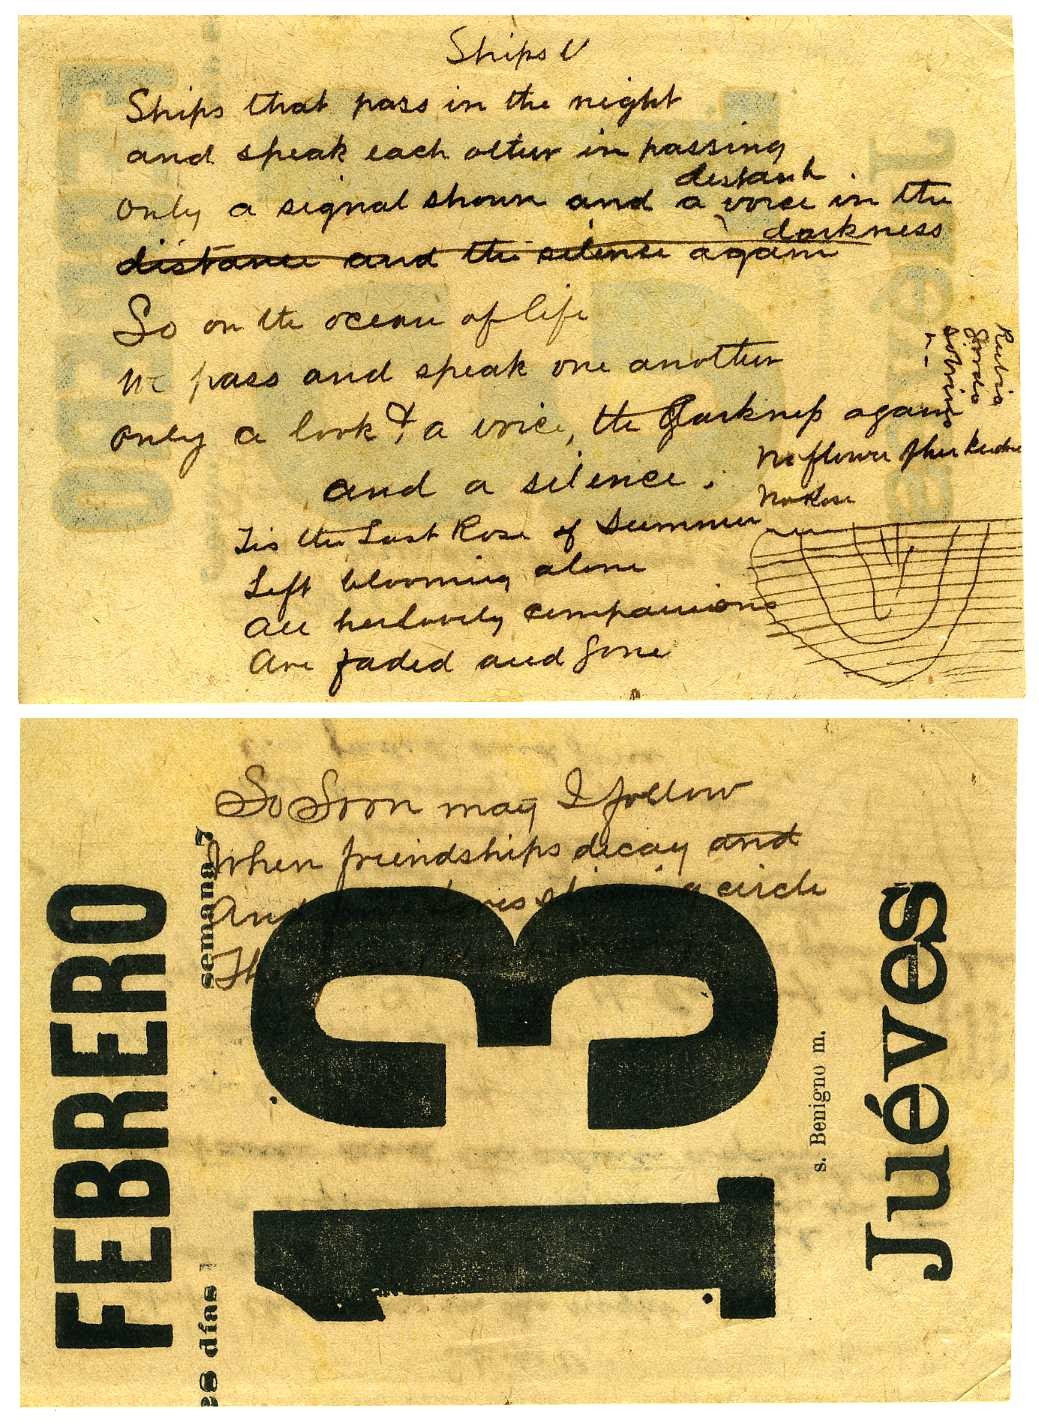 Ships
Ships that pass in the night
and speak each other in passing
distant
only a signal shown and a voice in the
darkness
distance and the silence again
So on the ocean of life
We pass and speak one another
only a look & a voice, the darkness again
and a silence.
No flower of her kindred
No Rose
Tis the Last Rose of Summer
Left blooming alone
All her lovely companions
Are faded and gone
So Soon may I follow
When friendships decay and
And circle
FEBRERO
semana 7
es días
13
s. Benigno m.
Juéves